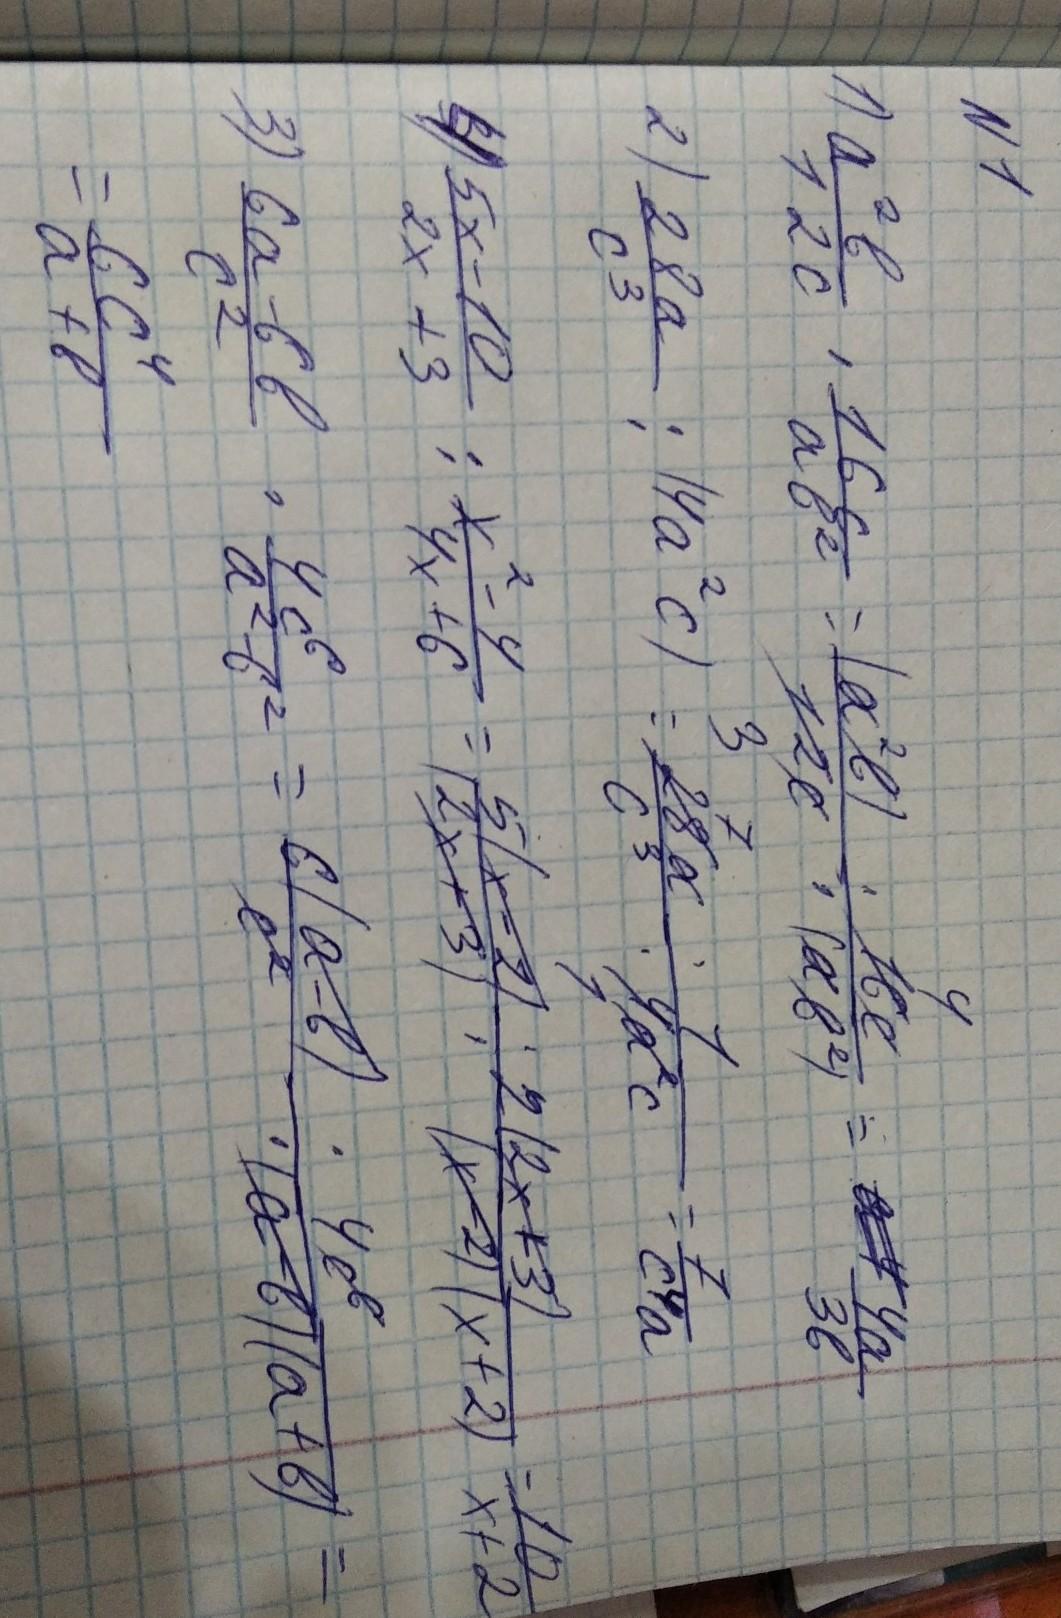 N1
1) a²b/12c · 16c/ab² = (a²b) · 16c/12c · (ab²) = 4a/3b
2) 28a/c³ : (4a²c) = 28a · 1/c³ · 4a²c = 7/c⁴a
4) 5x-10/2x+3 : x²-4/4x+6 = 5(x-2) · 2(2x+3)/(2x+3) · (x-2)(x+2) = 10/x+2
3) 6a-6b/c² · 4c⁶/a²-b² = 6(a-b) · 4c⁶/c² · (a-b)(a+b) =
= 6c⁴/a+b